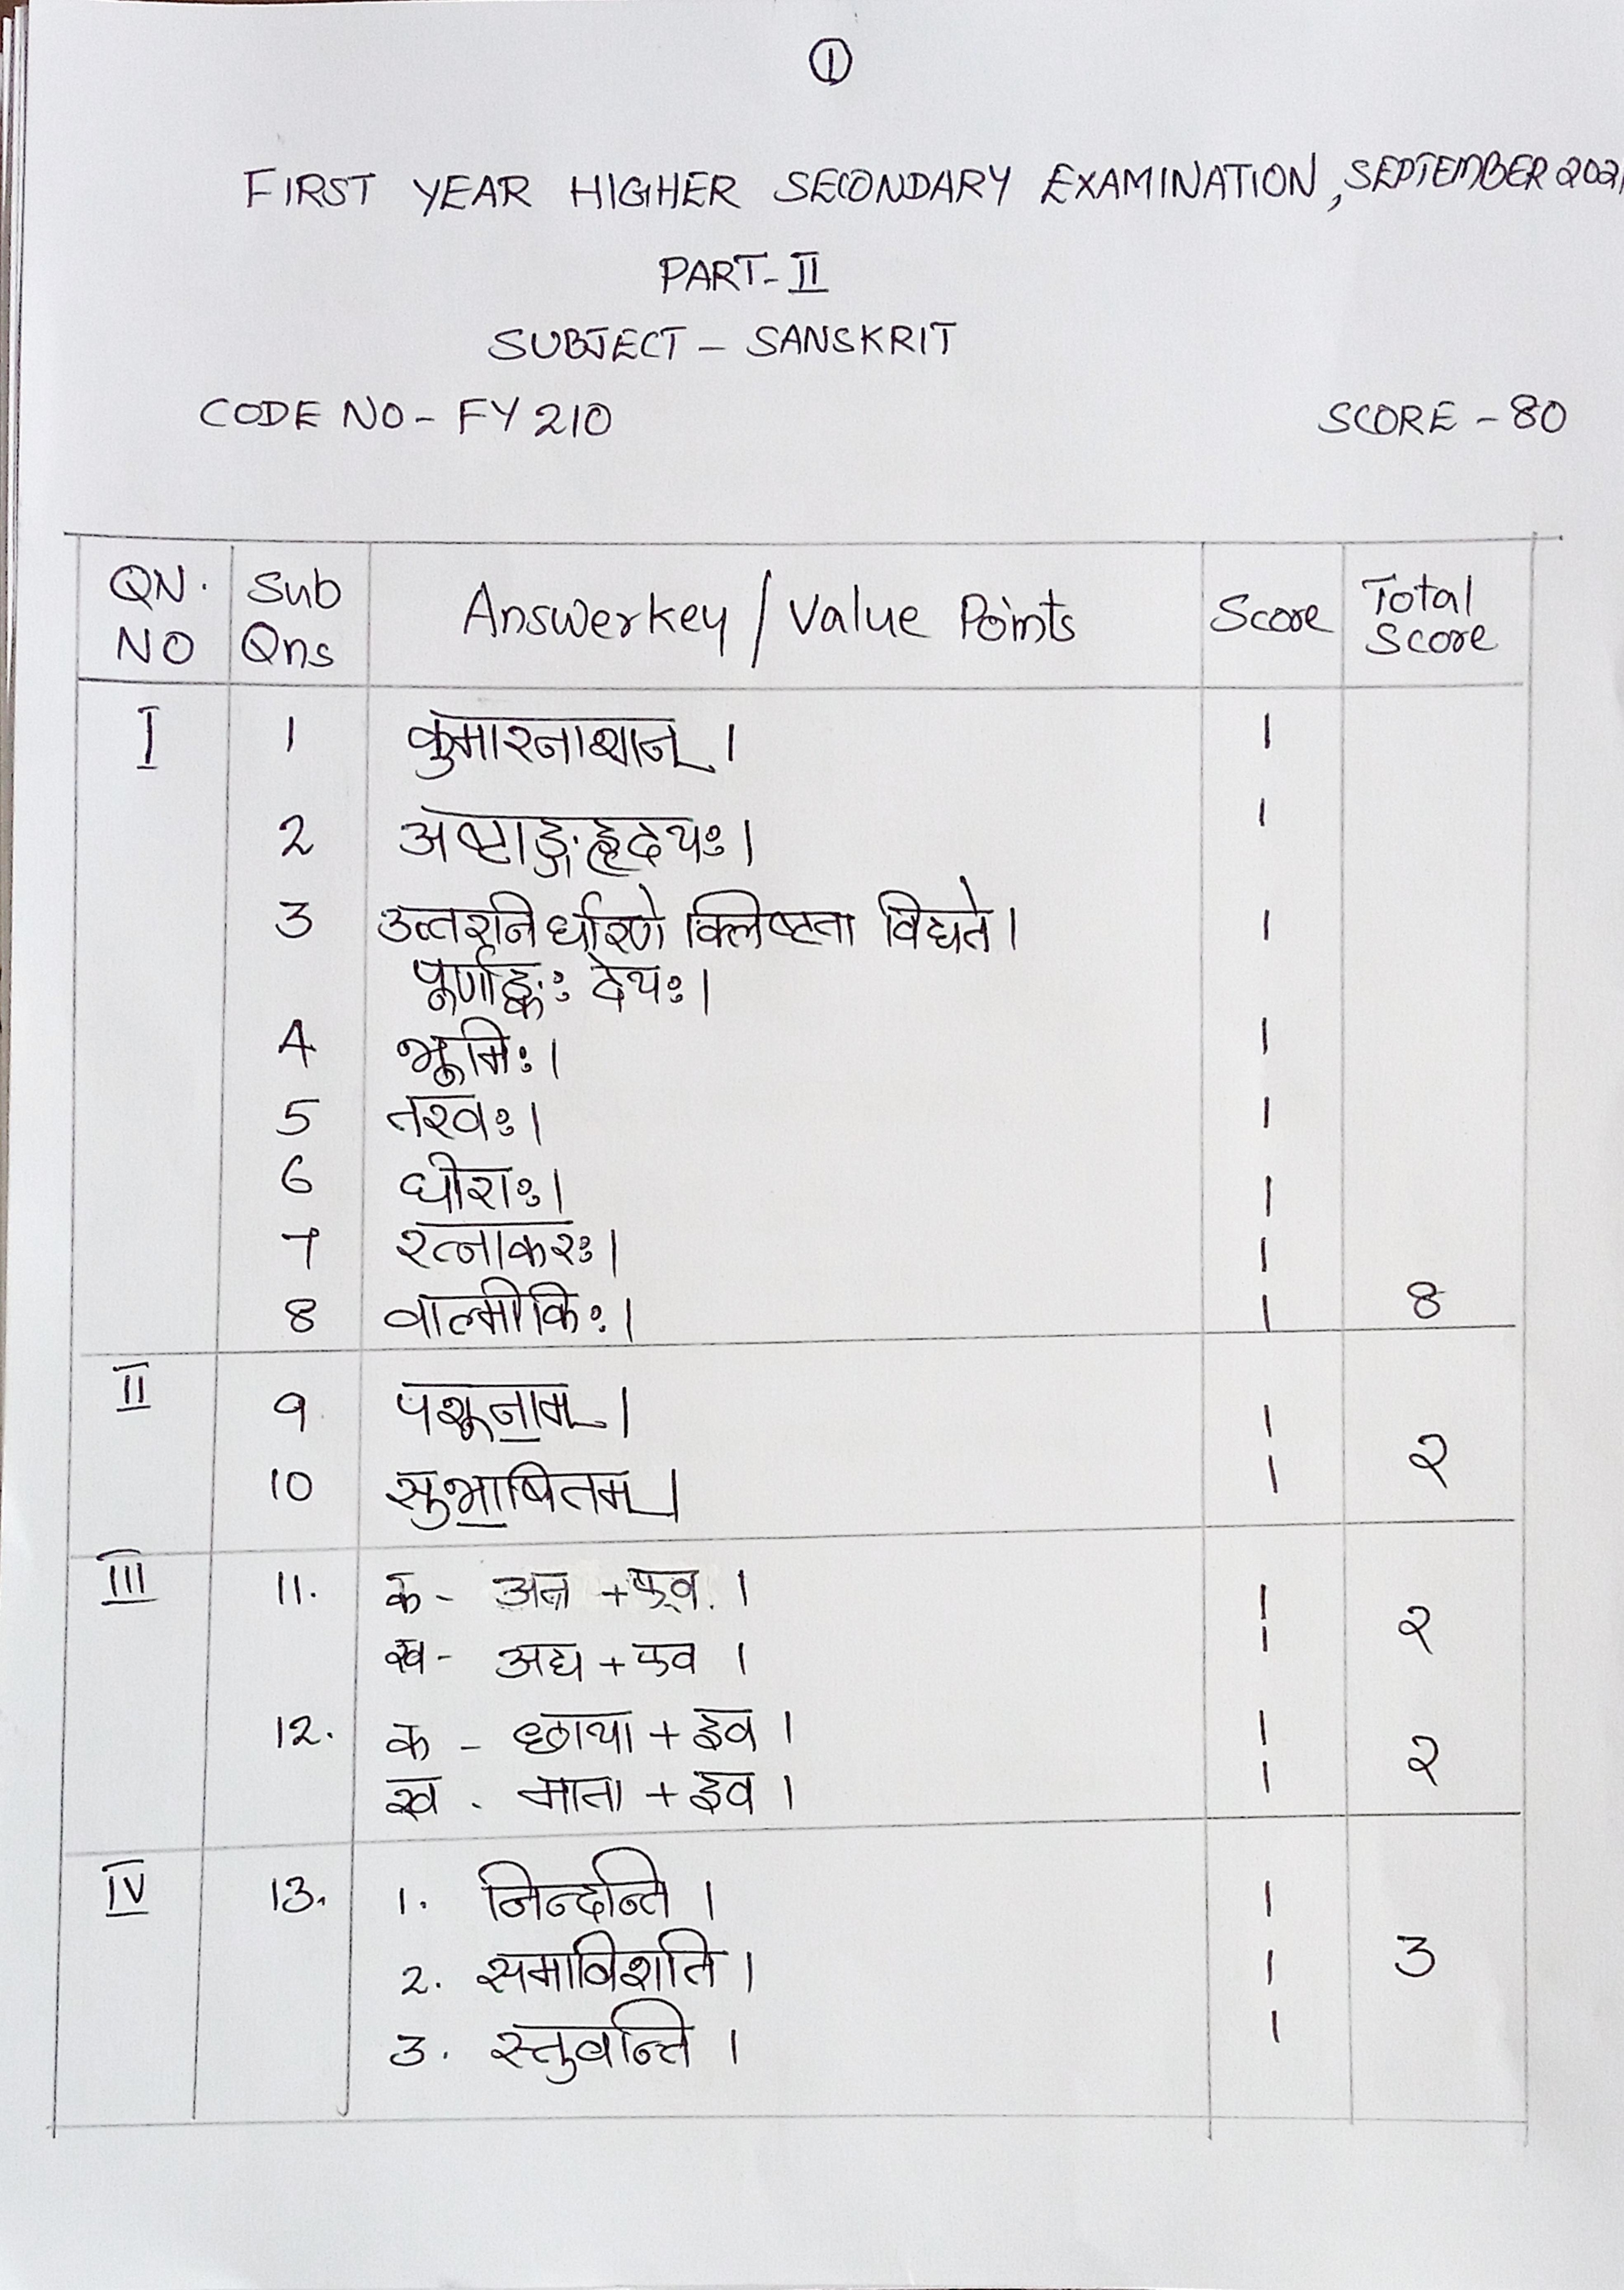 1
FIRST YEAR HIGHER SECONDARY EXAMINATION, SEPTEMBER 2021
PART-II
SUBJECT - SANSKRIT
CODE NO - FY 210 SCORE - 80
QN. NO Sub Qns Answerkey / Value Points Score Total Score
I 1 कुमारनाशान् । 1
2 अष्टाङ्गहृदयः । 1
3 उत्तरनिर्धारणे क्लिष्टता विद्यते । 1
पूर्णाङ्कः देयः ।
4 भूमिः । 1
5 तरवः । 1
6 धीराः । 1
7 रत्नाकरः । 1
8 वाल्मीकिः । 1 8
II 9 पशूनाम् । 1
10 सुभाषितम् । 1 २
III 11. क - अत्र + एव । 1
ख - अद्य + एव । 1 २
12. क - छाया + इव । 1
ख - माता + इव । 1 २
IV 13. 1. निन्दन्ति । 1
2. समाविशति । 1 3
3. स्तुवन्ति । 1